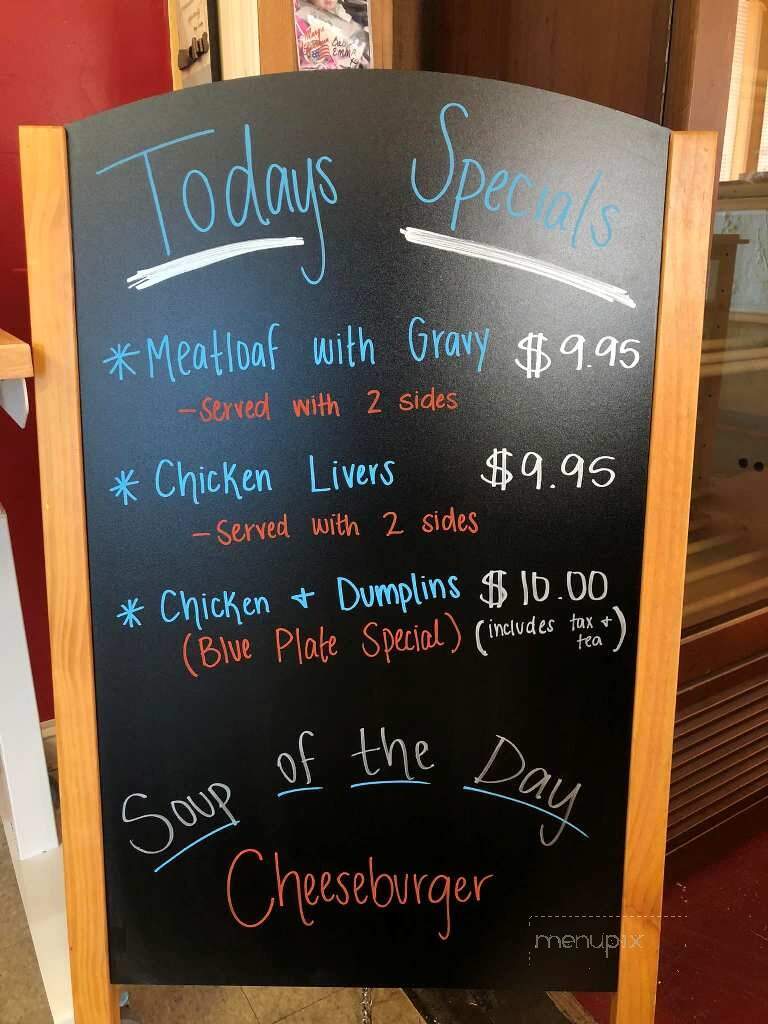 Todays Specials
* Meatloaf with Gravy $9.95
- Served with 2 sides
* Chicken Livers $9.95
- Served with 2 sides
* Chicken + Dumplins $10.00
(Blue Plate Special) (includes tax + tea)
Soup of the Day
Cheeseburger
menupix